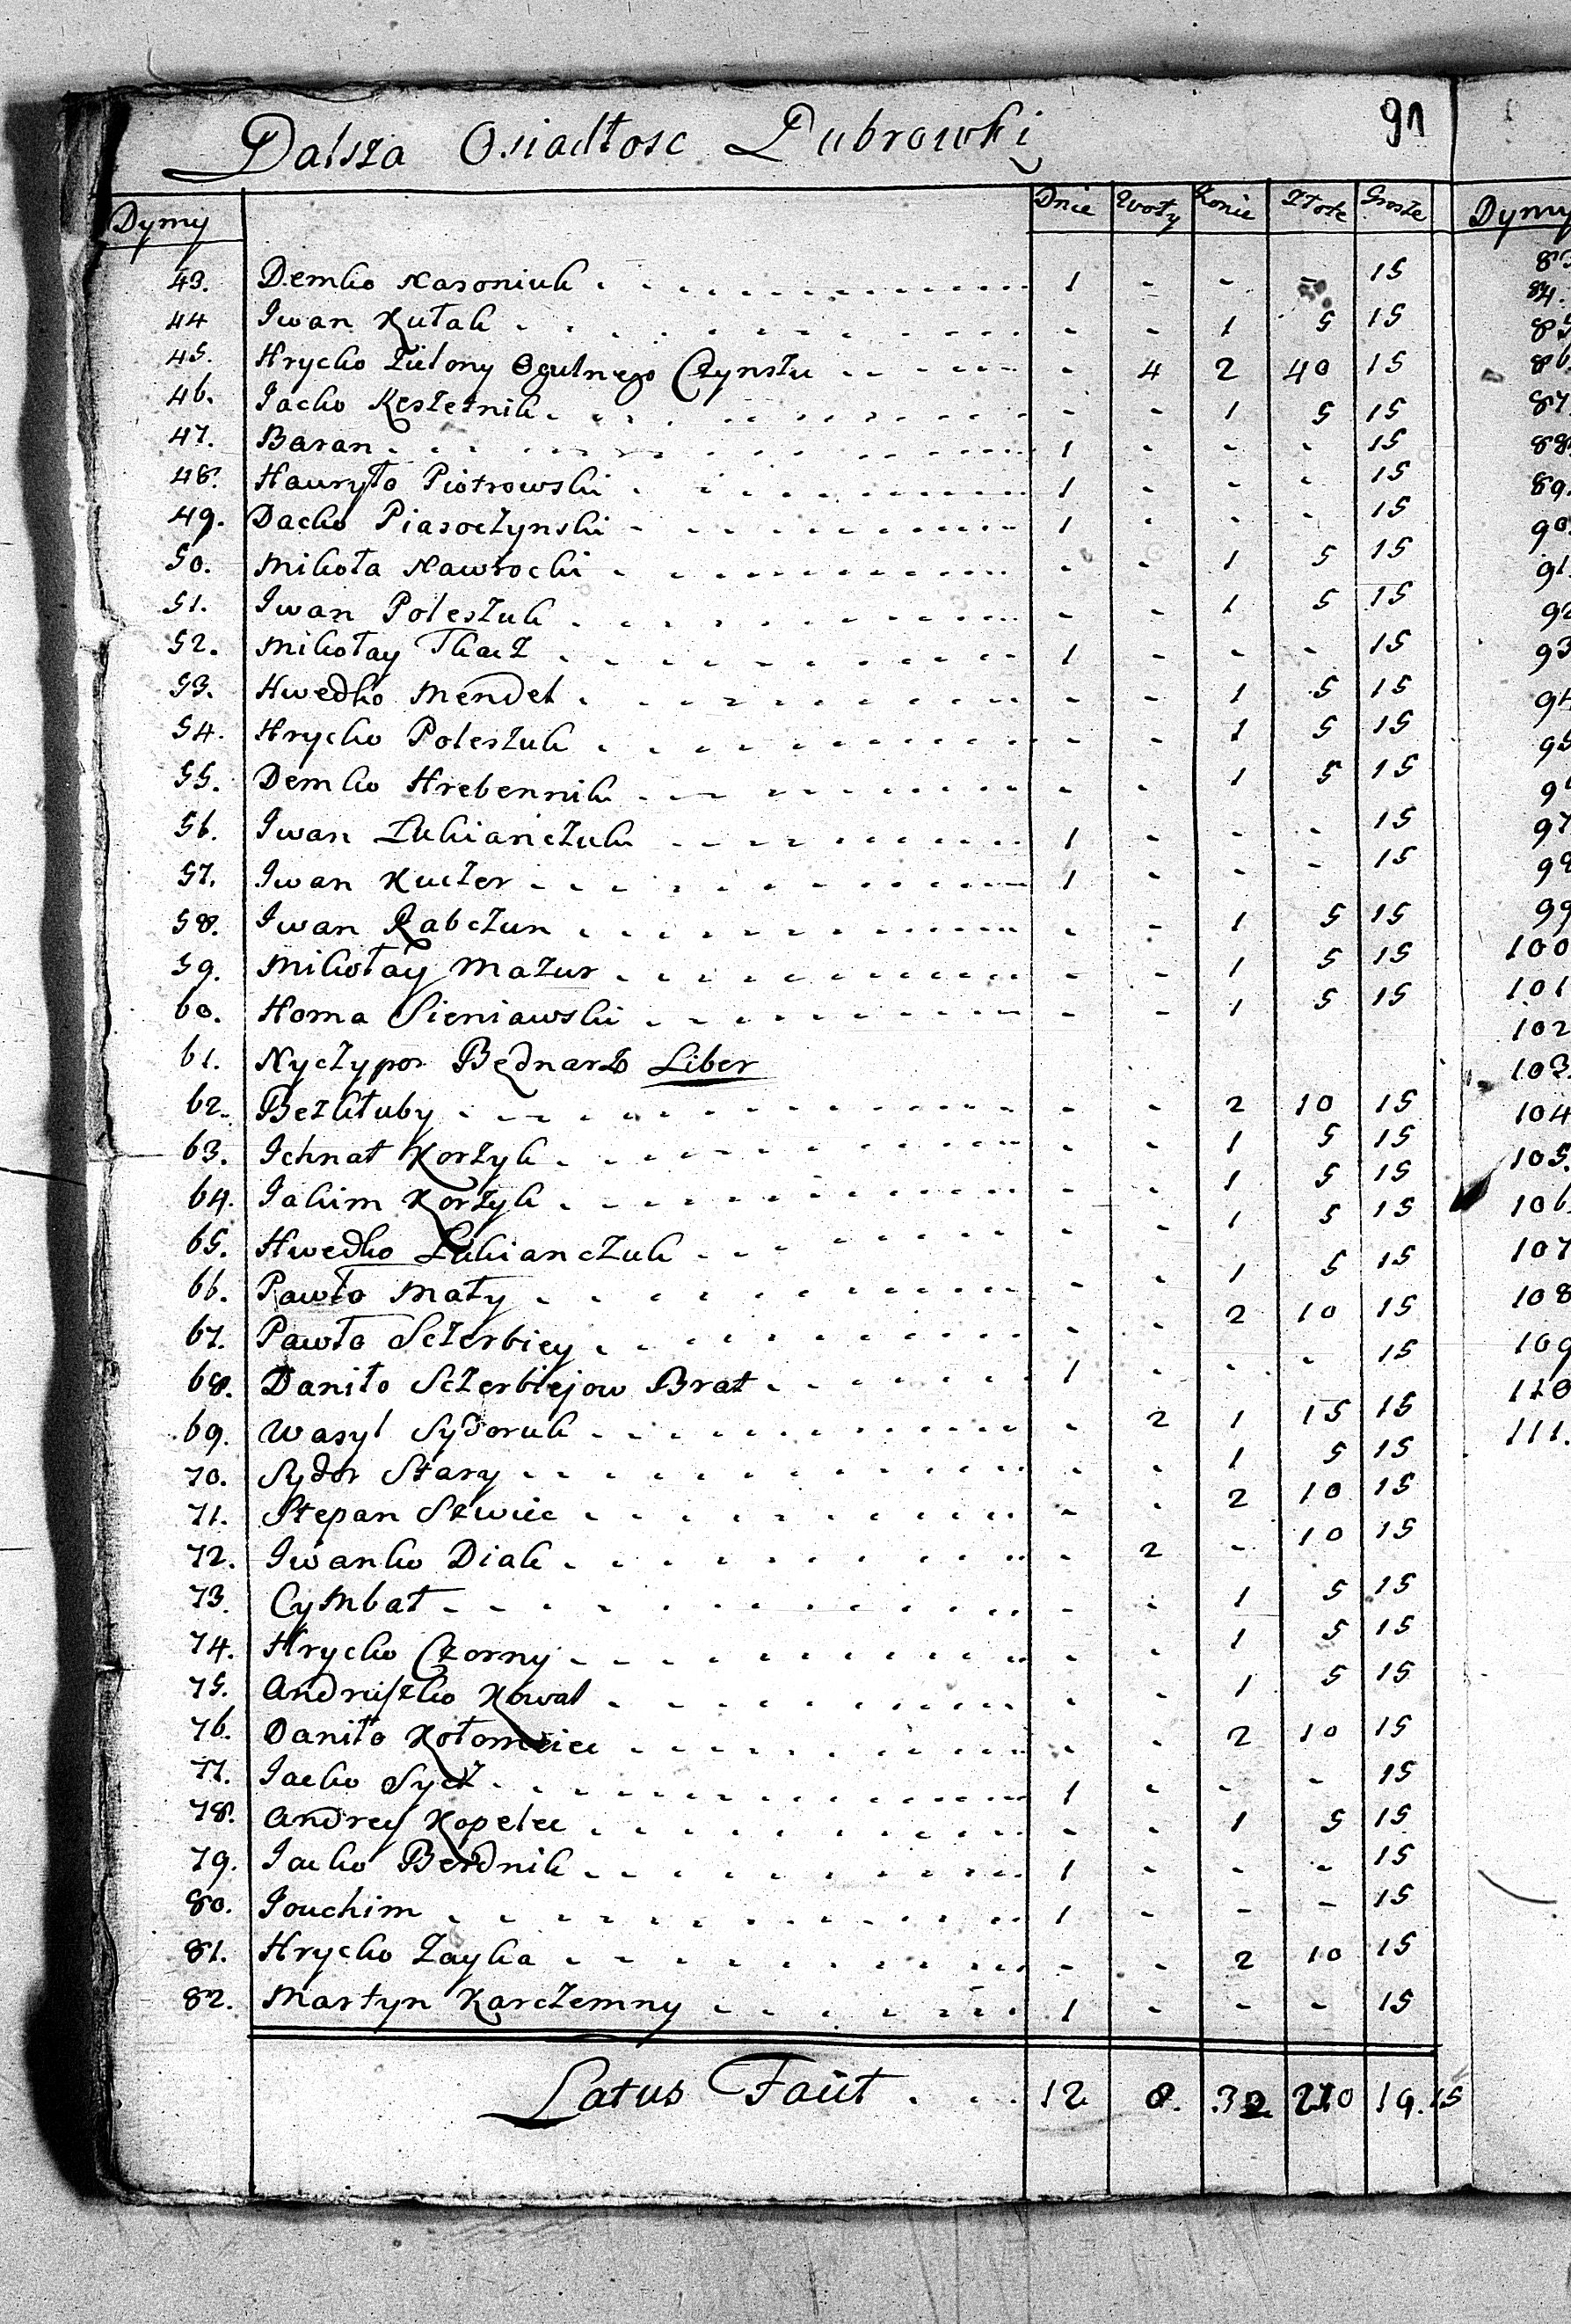 91
Dalsza Osiadłosc Dubrowki
Dymy Dnie Woły Konie Złote Grosze
43. Demko Kasoniuk 1 - - - 15
44 Iwan Kułak - - 1 5 15
45. Hrycko Zielony Ogulnego Czynszu - 4 2 40 15
46. Jacko Reszetnik - - 1 5 15
47. Baran 1 - - - 15
48. Hawryło Piotrowski 1 - - - 15
49. Dacko Piasoczynski 1 - - - 15
50. Mikoła Nawrocki - - 1 5 15
51. Iwan Poleszuk - - 1 5 15
52. Mikołay Tkacz 1 - - - 15
53. Hwedko Mendel - - 1 5 15
54. Hrycko Poleszuk - - 1 5 15
55. Demko Hrebennik - - 1 5 15
56. Iwan Lukianczuk 1 - - - 15
57. Iwan Kuczer 1 - - - 15
58. Iwan Rabczun - - 1 5 15
59. Mikołay Mazur - - 1 5 15
60. Homa Sieniawski - - 1 5 15
61. Nyczypor Bednarz Liber
62. Bezkłuby - - 2 10 15
63. Ichnat Korzyk - - 1 5 15
64. Jakim Korzyk - - 1 5 15
65. Hwedko Lukianczuk - - 1 5 15
66. Pawło Mały - - 1 5 15
67. Pawło Sczerbiey - - 2 10 15
68. Daniło Sczerbiejow Brat 1 - - - 15
69. Wasyl Sydoruk - 2 1 15 15
70. Sydor Stary - - 1 5 15
71. Stepan Szwiec - - 2 10 15
72. Iwanko Diak - 2 - 10 15
73. Cymbał - - 1 5 15
74. Hrycko Czorny - - 1 5 15
75. Andruszko Kowal - - 1 5 15
76. Daniło Kołomiiec - - 2 10 15
77. Jacko Sycz 1 - - - 15
78. Andrey Kopelec - - 1 5 15
79. Jacko Berdnik 1 - - - 15
80. Jouchim 1 - - - 15
81. Hrycko Zayka - - 2 10 15
82. Martyn Karczemny 1 - - - 15
Latus Facit 12 8. 32 210 19.15
Dymy
84.
85
86
87.
88.
89.
90.
91.
92
93
94
95
97
98
99
100
101
102
103.
104
105.
106.
107
108
109
110
111.